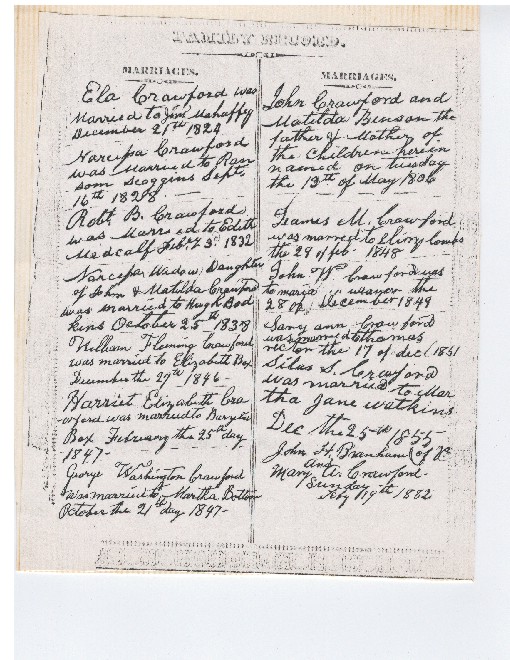 FAMILY RECORD.
MARRIAGES.
Ela Crawford was
married to Jim Mahaffy
December 21st 1824
Narcissa Crawford
was married to Ran
som Scoggins Sept.
16th 1828
Robt B. Crawford
was Married to Edith
Medcalf Feb. 23d 1832
Narcissa Widow, Daughter
of John & Matilda Crawford
was married to Hugh Bod
kins October 25th 1838
William Fleming Crawford
was married to Elizabeth Box
December the 29th 1846-
Harriet Elizabeth Cra
wford was married to
Box February the 25th day
1847-
George Washington Crawford
was married to Martha Bottom
October the 21st day 1847-
MARRIAGES.
John Crawford and
Matilda Benson the
father & Mother of
the Children herein
named on tuesday
the 13th of May 1806
James M. Crawford
was married to Combs
the 29 of feb 1848
John W. Crawford was
to maria weaver the
28 of December 1849
Sary ann Crawford
was married thomas
on the 17 of dec 1851
Silas S. Crawford
was married to Mar
tha Jane watkins
Dec the 25th 1855
John H. Branham of
and
Mary A. Crawford-
Sunday
19th 1882